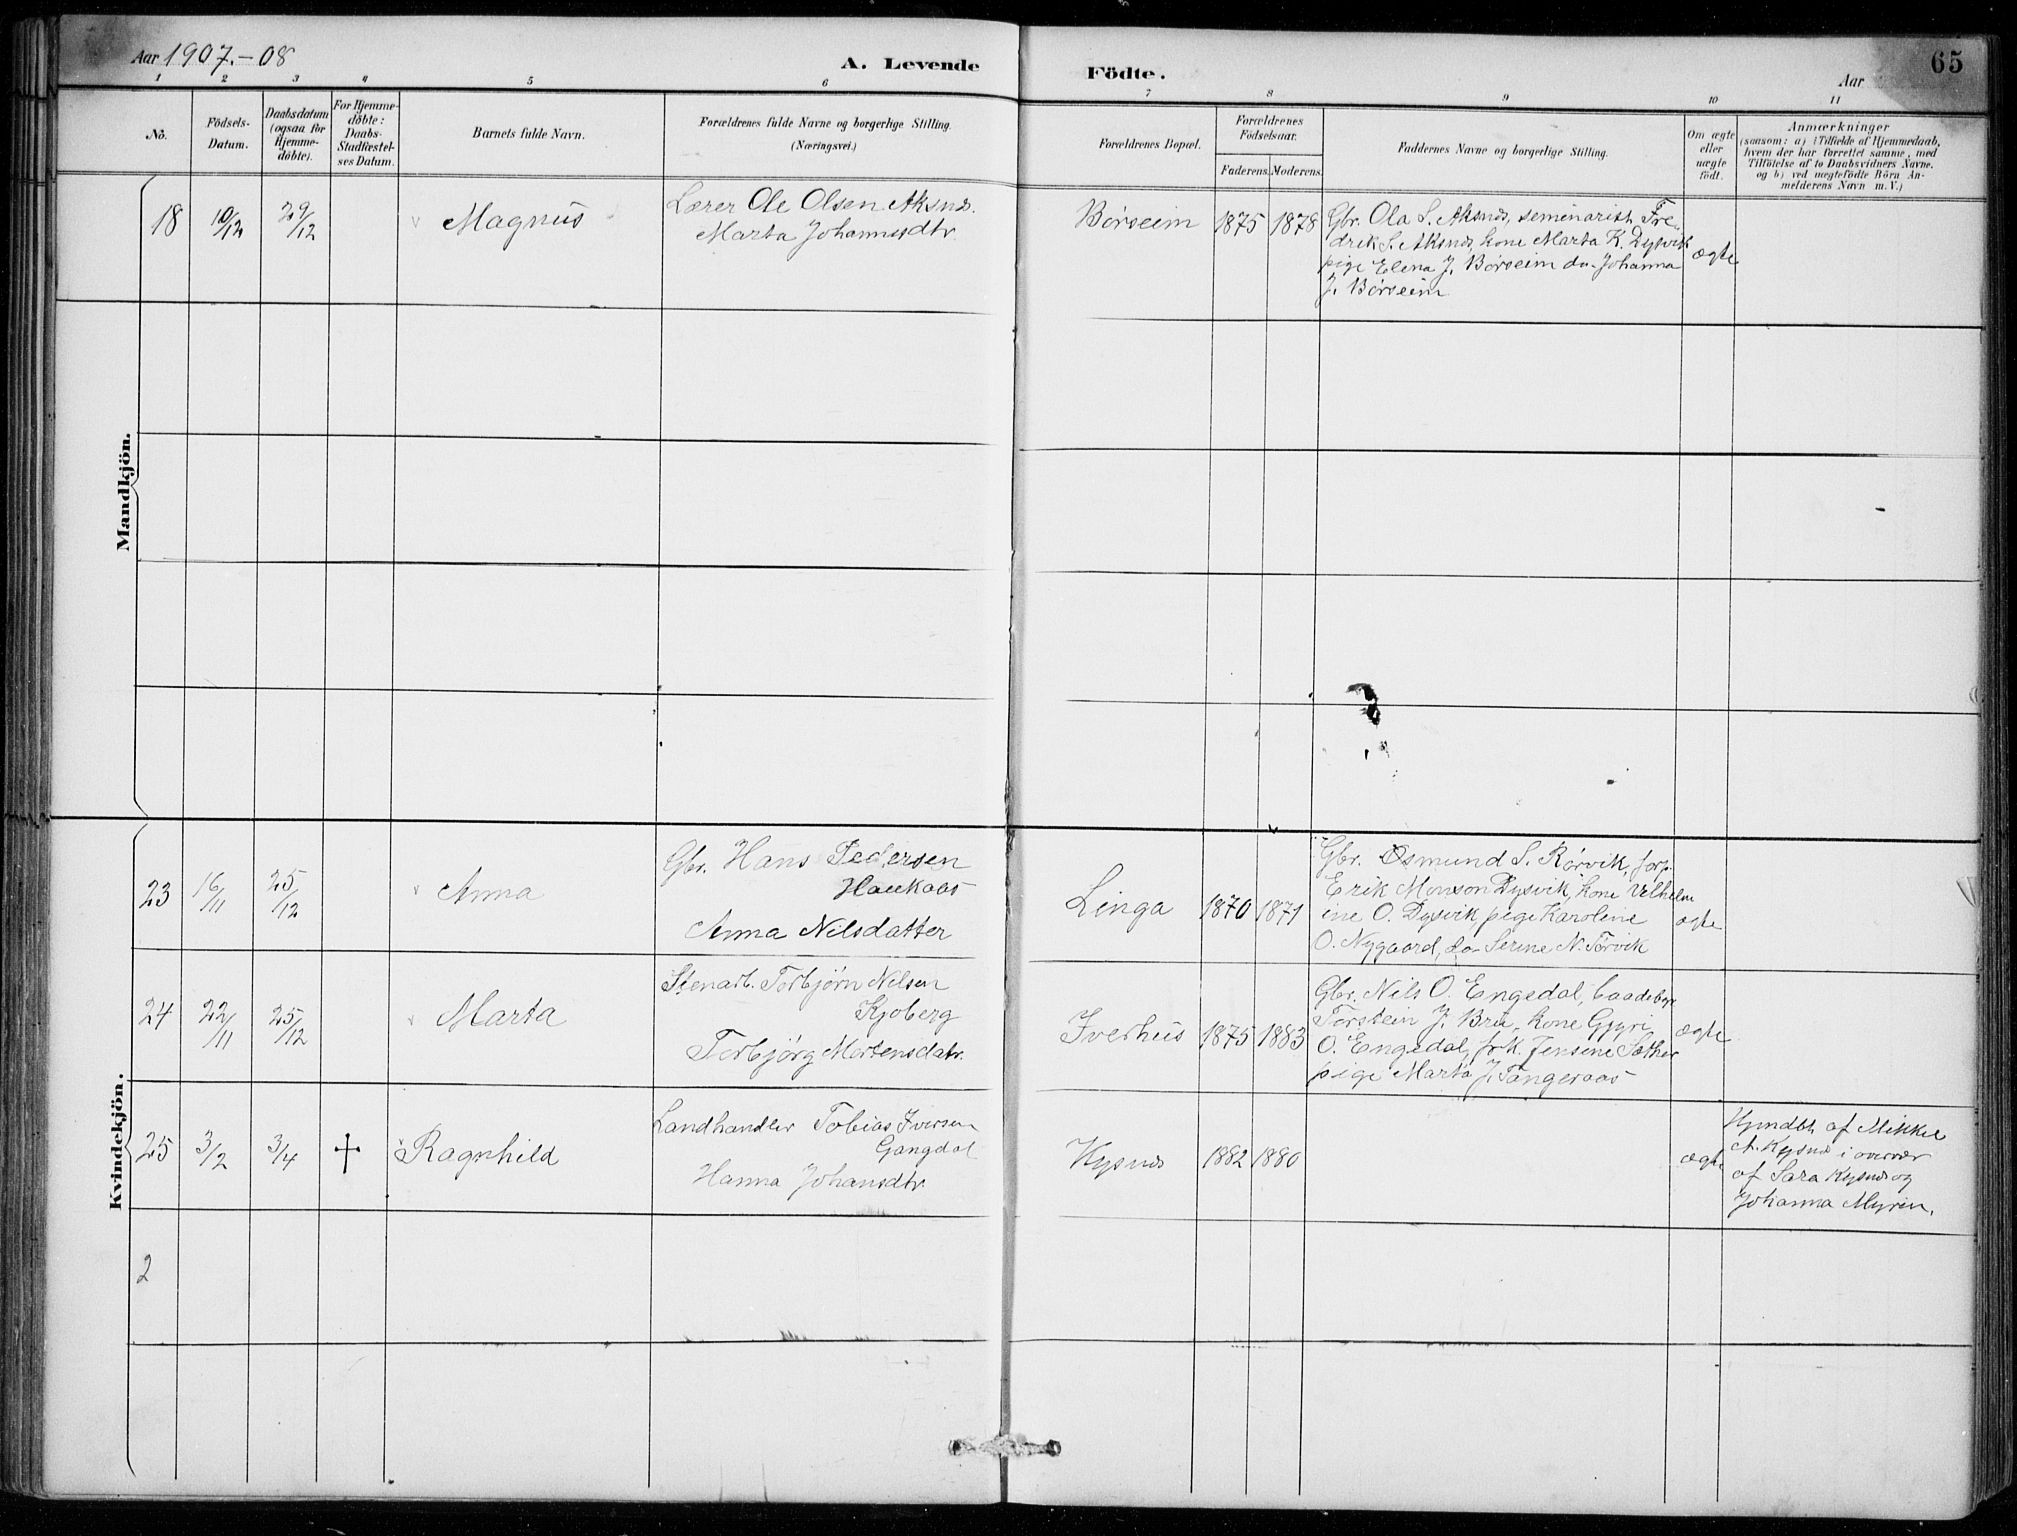 Aar 1907.-08
A. Levende
Födte.
Aar
65
1 2 3 4 5 6 7 8 9 10 11
No.
Födsels-
Datum.
Daabsdatum
(ogsaa for
Hjemme-
döbte).
For Hjemme-
döbte:
Daabs-
Stadfæstel-
ses Datum.
Barnets fulde Navn.
Forældrenes fulde Navne og borgerlige Stilling.
(Næringsvei.)
Forældrenes Bopæl.
Forældrenes
Födselsaar.
Faderens.
Moderens.
Faddernes Navne og borgerlige Stilling.
Om ægte
eller
uægte
födt.
Anmærkninger
(saasom: a) i Tilfælde af Hjemmedaab,
hvem der har forrettet samme, med
Tilföielse af to Daabsvidners Navne.
og b) ved uægtefödte Börn An-
melderens Navn m. V.)
Mandkjön.
18
10/12
29/12
Magnus
Lærer Ole Olsen Aksnæs.
Marta Johannesdtr.
Børseim
1875
1878
Gbr. Ola S. Aksnæs, seminarist Fre-
drik S. Aksnæs, kone Marta K. Dysvik
pige Elena J. Børseim do Johanna
J. Børseim
ægte
Kvindekjön.
23
16/11
25/12
Anna
Gbr. Hans Pedersen
Haukaas
Anna Nilsdatter
Linga
1870
1871
Gbr. Osmund S. Rørvik, forp.
Erik Monson Dysvik, kone Vilhelm
ine O. Dysvik, pige Karoline
O. Nygaard, do Serine N. Tørvik
ægte
24
22/11
25/12
Marta
Stenarb. Torbjørn Nilsen
Kjoberg
Torbjørg Mortensdatr.
Iverhus
1875
1883
Gbr. Nils O. Engedal, baadebygr
Torstein J. Bru, kone Gjyri
O. Engedal, frk. Jensine Sæther
pige Marta J. Tangeraas
ægte
25
3/2
3/4
†
Ragnhild
Landhandler Tobias Iversen
Gangdal
Hanna Johansdtr.
Kysnæs
1882
1880
ægte
Hjmdbt. af Mikkel
A. Kysnæs i overvær
af Sara Kysnæs og
Johanna Myren.
2